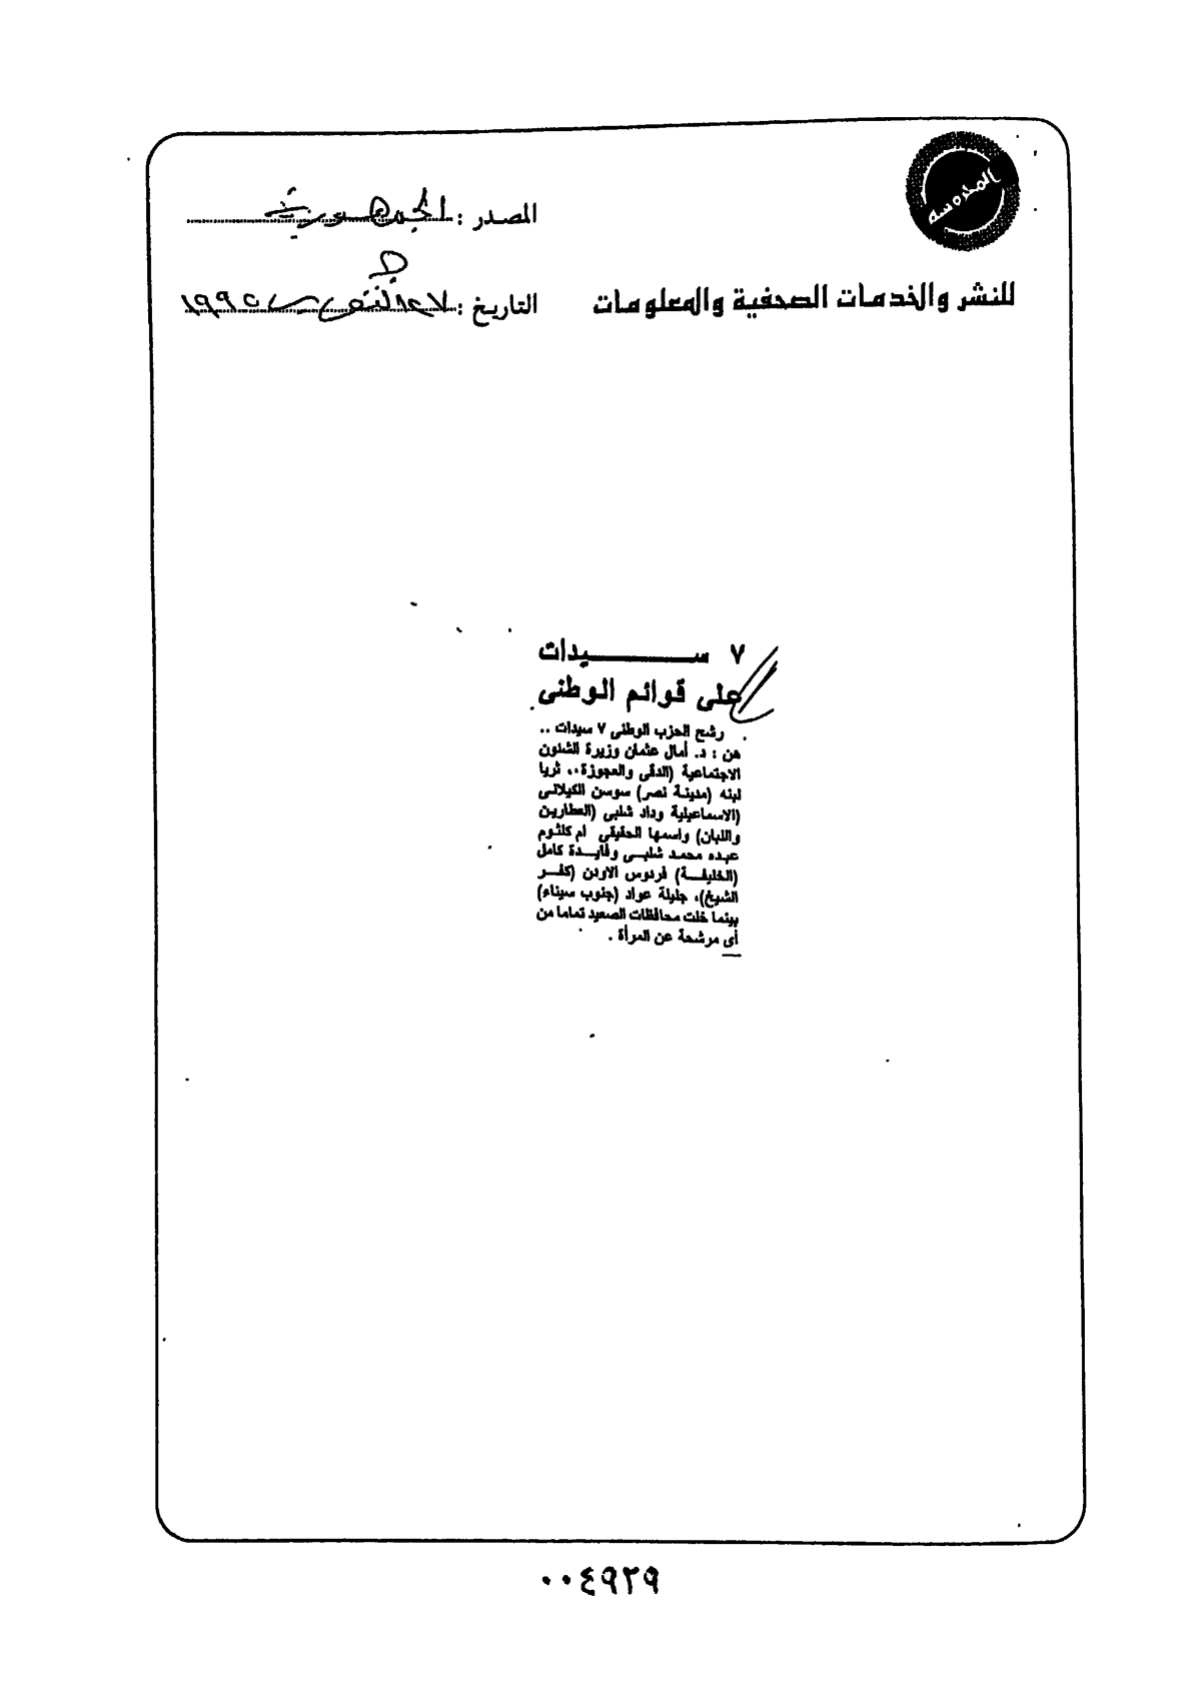 المحروسة
المصدر : الجمهورية
للنشر والخدمات الصحفية والمعلومات
التاريخ : ١٩٩٥
٧ سيدات
على قوائم الوطنى
رشح الحزب الوطنى ٧ سيدات ..
هن : د. أمال عثمان وزيرة الشئون
الاجتماعية (الدقى والعجوزة،، ثريا
لبنه (مدينة نصر) سوسن الكيلانى
(الاسماعيلية وداد شلبى (العطارين
واللبان) واسمها الحقيقى ام كلثوم
عبده محمد شلبى وفايدة كامل
(الخليفة) فردوس الاودن (كفر
الشيخ)، جليلة عواد (جنوب سيناء)
بينما خلت محافظات الصعيد تماما من
أى مرشحة عن المرأة .
٠٠٤٩٢٩